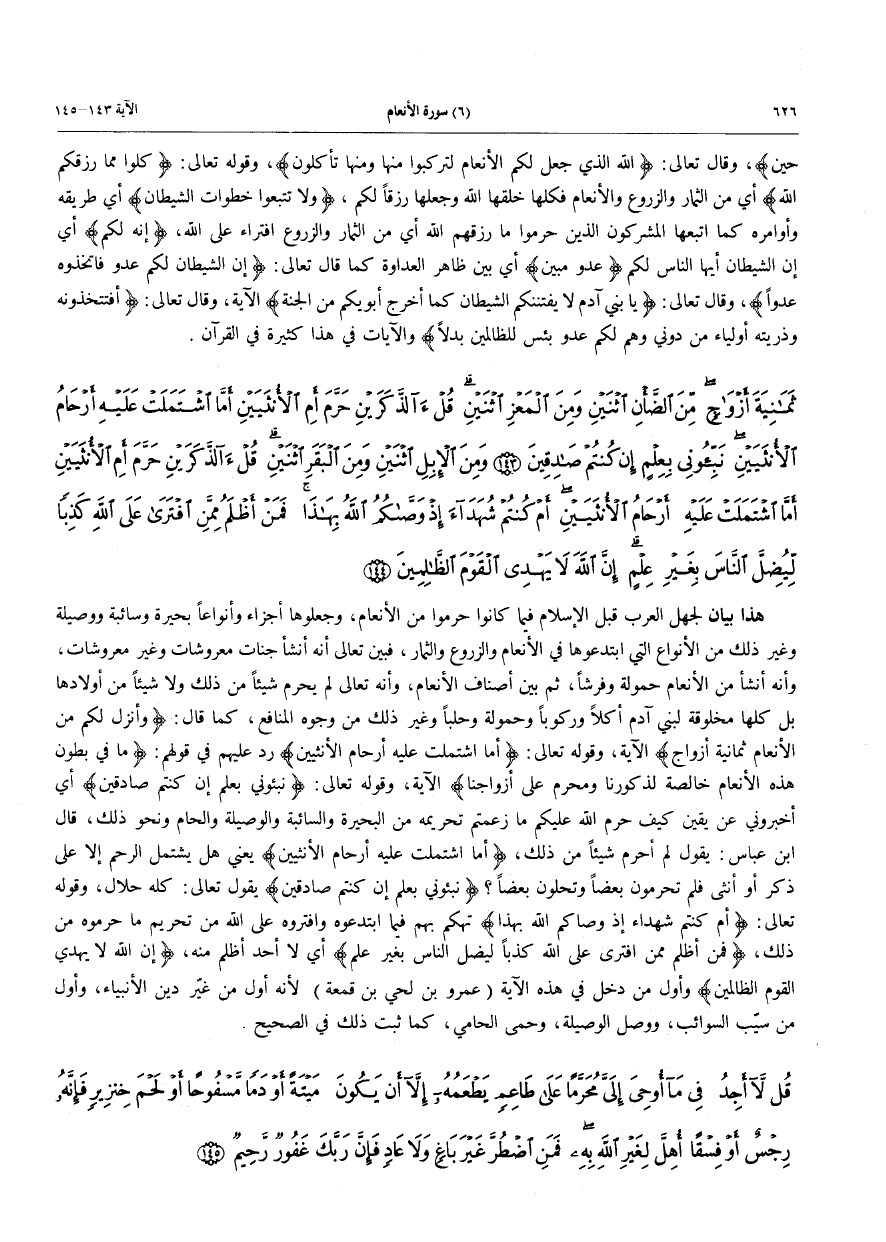 ٦٢٦ (٦) سورة الأنعام الآية ١٤٣-١٤٥
حين﴾، وقال تعالى: ﴿ الله الذي جعل لكم الأنعام لتركبوا منها ومنها تأكلون﴾، وقوله تعالى: ﴿ كلوا مما رزقكم
الله﴾ أي من الثمار والزروع والأنعام فكلها خلقها الله وجعلها رزقاً لكم ، ﴿ولا تتبعوا خطوات الشيطان﴾ أي طريقه
وأوامره كما اتبعها المشركون الذين حرموا ما رزقهم الله أي من الثمار والزروع افتراء على الله، ﴿إنه لكم﴾ أي
إن الشيطان أيها الناس لكم ﴿ عدو مبين﴾ أي بين ظاهر العداوة كما قال تعالى: ﴿ إن الشيطان لكم عدو فاتخذوه
عدواً﴾، وقال تعالى: ﴿ يا بني آدم لا يفتننكم الشيطان كما أخرج أبويكم من الجنة﴾ الآية، وقال تعالى: ﴿ أفتتخذونه
وذريته أولياء من دوني وهم لكم عدو بئس للظالمين بدلاً﴾ والآيات في هذا كثيرة في القرآن .
ثَمَـٰنِيَةَ أَزْوَٰجٍ ۖ مِّنَ ٱلضَّأْنِ ٱثْنَيْنِ وَمِنَ ٱلْمَعْزِ ٱثْنَيْنِ ۗ قُلْ ءَآلذَّكَرَيْنِ حَرَّمَ أَمِ ٱلْأُنثَيَيْنِ أَمَّا ٱشْتَمَلَتْ عَلَيْهِ أَرْحَامُ
ٱلْأُنثَيَيْنِ ۖ نَبِّـُٔونِى بِعِلْمٍ إِن كُنتُمْ صَـٰدِقِينَ ﴿١٤٣﴾ وَمِنَ ٱلْإِبِلِ ٱثْنَيْنِ وَمِنَ ٱلْبَقَرِ ٱثْنَيْنِ ۗ قُلْ ءَآلذَّكَرَيْنِ حَرَّمَ أَمِ ٱلْأُنثَيَيْنِ
أَمَّا ٱشْتَمَلَتْ عَلَيْهِ أَرْحَامُ ٱلْأُنثَيَيْنِ ۖ أَمْ كُنتُمْ شُهَدَآءَ إِذْ وَصَّىٰكُمُ ٱللَّهُ بِهَـٰذَا ۚ فَمَنْ أَظْلَمُ مِمَّنِ ٱفْتَرَىٰ عَلَى ٱللَّهِ كَذِبًا
لِّيُضِلَّ ٱلنَّاسَ بِغَيْرِ عِلْمٍ ۗ إِنَّ ٱللَّهَ لَا يَهْدِى ٱلْقَوْمَ ٱلظَّـٰلِمِينَ ﴿١٤٤﴾
هذا بيان لجهل العرب قبل الإسلام فيما كانوا حرموا من الأنعام، وجعلوها أجزاء وأنواعاً بحيرة وسائبة ووصيلة
وغير ذلك من الأنواع التي ابتدعوها في الأنعام والزروع والثمار ، فبين تعالى أنه أنشأ جنات معروشات وغير معروشات،
وأنه أنشأ من الأنعام حمولة وفرشاً، ثم بين أصناف الأنعام، وأنه تعالى لم يحرم شيئاً من ذلك ولا شيئاً من أولادها
بل كلها مخلوقة لبني آدم أكلاً وركوباً وحمولة وحلباً وغير ذلك من وجوه المنافع، كما قال: ﴿وأنزل لكم من
الأنعام ثمانية أزواج﴾ الآية، وقوله تعالى: ﴿ أما اشتملت عليه أرحام الأنثيين﴾ رد عليهم في قولهم: ﴿ ما في بطون
هذه الأنعام خالصة لذكورنا ومحرم على أزواجنا﴾ الآية، وقوله تعالى: ﴿ نبئوني بعلم إن كنتم صادقين﴾ أي
أخبروني عن يقين كيف حرم الله عليكم ما زعمتم تحريمه من البحيرة والسائبة والوصيلة والحام ونحو ذلك، قال
ابن عباس: يقول لم أحرم شيئاً من ذلك، ﴿أما اشتملت عليه أرحام الأنثيين﴾ يعني هل يشتمل الرحم إلا على
ذكر أو أنثى فلم تحرمون بعضاً وتحلون بعضاً ؟ ﴿ نبئوني بعلم إن كنتم صادقين﴾ يقول تعالى: كله حلال، وقوله
تعالى: ﴿أم كنتم شهداء إذ وصاكم الله بهذا﴾ تهكم بهم فيما ابتدعوه وافتروه على الله من تحريم ما حرموه من
ذلك، ﴿فمن أظلم ممن افترى على الله كذباً ليضل الناس بغير علم﴾ أي لا أحد أظلم منه، ﴿إن الله لا يهدي
القوم الظالمين﴾ وأول من دخل في هذه الآية ( عمرو بن لحي بن قمعة ) لأنه أول من غيّر دين الأنبياء، وأول
من سيّب السوائب، ووصل الوصيلة، وحمى الحامي، كما ثبت ذلك في الصحيح .
قُل لَّآ أَجِدُ فِى مَآ أُوحِىَ إِلَىَّ مُحَرَّمًا عَلَىٰ طَاعِمٍ يَطْعَمُهُۥٓ إِلَّآ أَن يَكُونَ مَيْتَةً أَوْ دَمًا مَّسْفُوحًا أَوْ لَحْمَ خِنزِيرٍ فَإِنَّهُۥ
رِجْسٌ أَوْ فِسْقًا أُهِلَّ لِغَيْرِ ٱللَّهِ بِهِۦ ۚ فَمَنِ ٱضْطُرَّ غَيْرَ بَاغٍ وَلَا عَادٍ فَإِنَّ رَبَّكَ غَفُورٌ رَّحِيمٌ ﴿١٤٥﴾